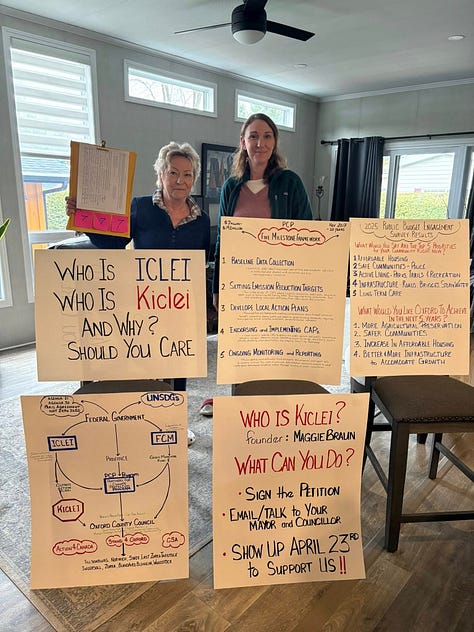 WHO IS ICLEI
WHO IS Kiclei
AND WHY?
SHOULD YOU CARE
PCP
FIVE MILESTONE FRAMEWORK
1 BASELINE DATA COLLECTION
2 SETTING EMISSION REDUCTION TARGETS
3 DEVELOPE LOCAL ACTION PLANS
4 ENDORSING AND IMPLEMENTING CAPS
5 ONGOING MONITORING AND REPORTING
2025 PUBLIC BUDGET ENGAGEMENT
SURVEY RESULTS
1 AFFORDABLE HOUSING
2 SAFE COMMUNITIES - POLICE
3 ACTIVE LIVING - PARKS TRAILS & RECREATION
4 INFRASTRUCTURE - ROADS BRIDGES STORMWATER
5 LONG TERM CARE
WHAT WOULD YOU LIKE OXFORD TO ACHIEVE
IN THE NEXT 5 YEARS?
1. MORE AGRICULTURAL PRESERVATION
2. SAFER COMMUNITIES
3. INCREASE IN AFFORDABLE HOUSING
4. BETTER & MORE INFRASTRUCTURE
TO ACCOMODATE GROWTH
UNSDGs
FEDERAL GOVERNMENT
ICLEI
FCM
PROVINCE
PCP
KICLEI
OXFORD COUNTY COUNCIL
ACTION4CANADA
STAND 4 OXFORD
CSA
WHO IS KICLEI?
founder: MAGGIE BRAUN
WHAT CAN YOU DO?
• SIGN THE PETITION
• EMAIL/TALK TO YOUR
MAYOR AND COUNCILLOR
• SHOW UP APRIL 23RD
TO SUPPORT US!!